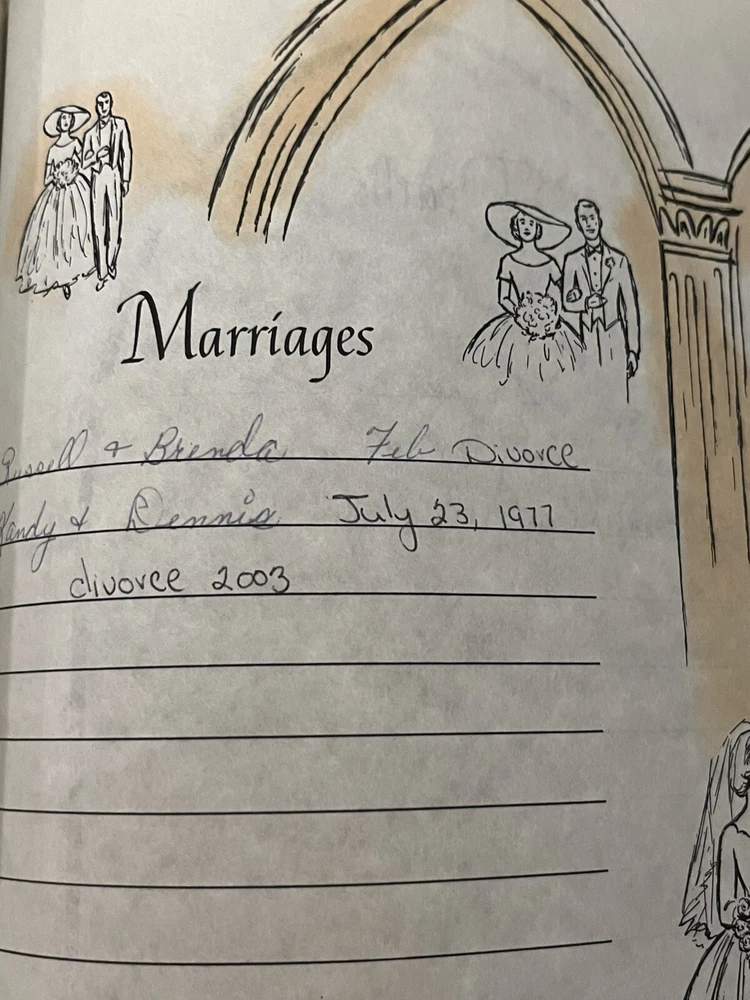 Marriages
Russell & Brenda Feb Divorce
Kandy & Dennis July 23, 1977
divorce 2003